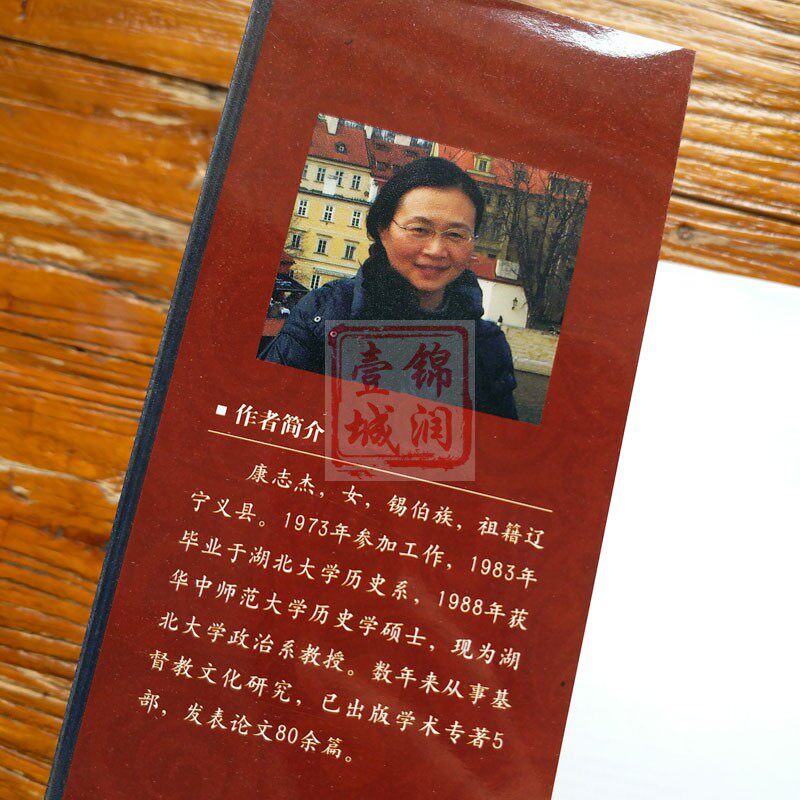 锦润
壹城
■ 作者简介
康志杰，女，锡伯族，祖籍辽
宁义县。1973年参加工作，1983年
毕业于湖北大学历史系，1988年获
华中师范大学历史学硕士，现为湖
北大学政治系教授。数年来从事基
督教文化研究，已出版学术专著5
部，发表论文80余篇。